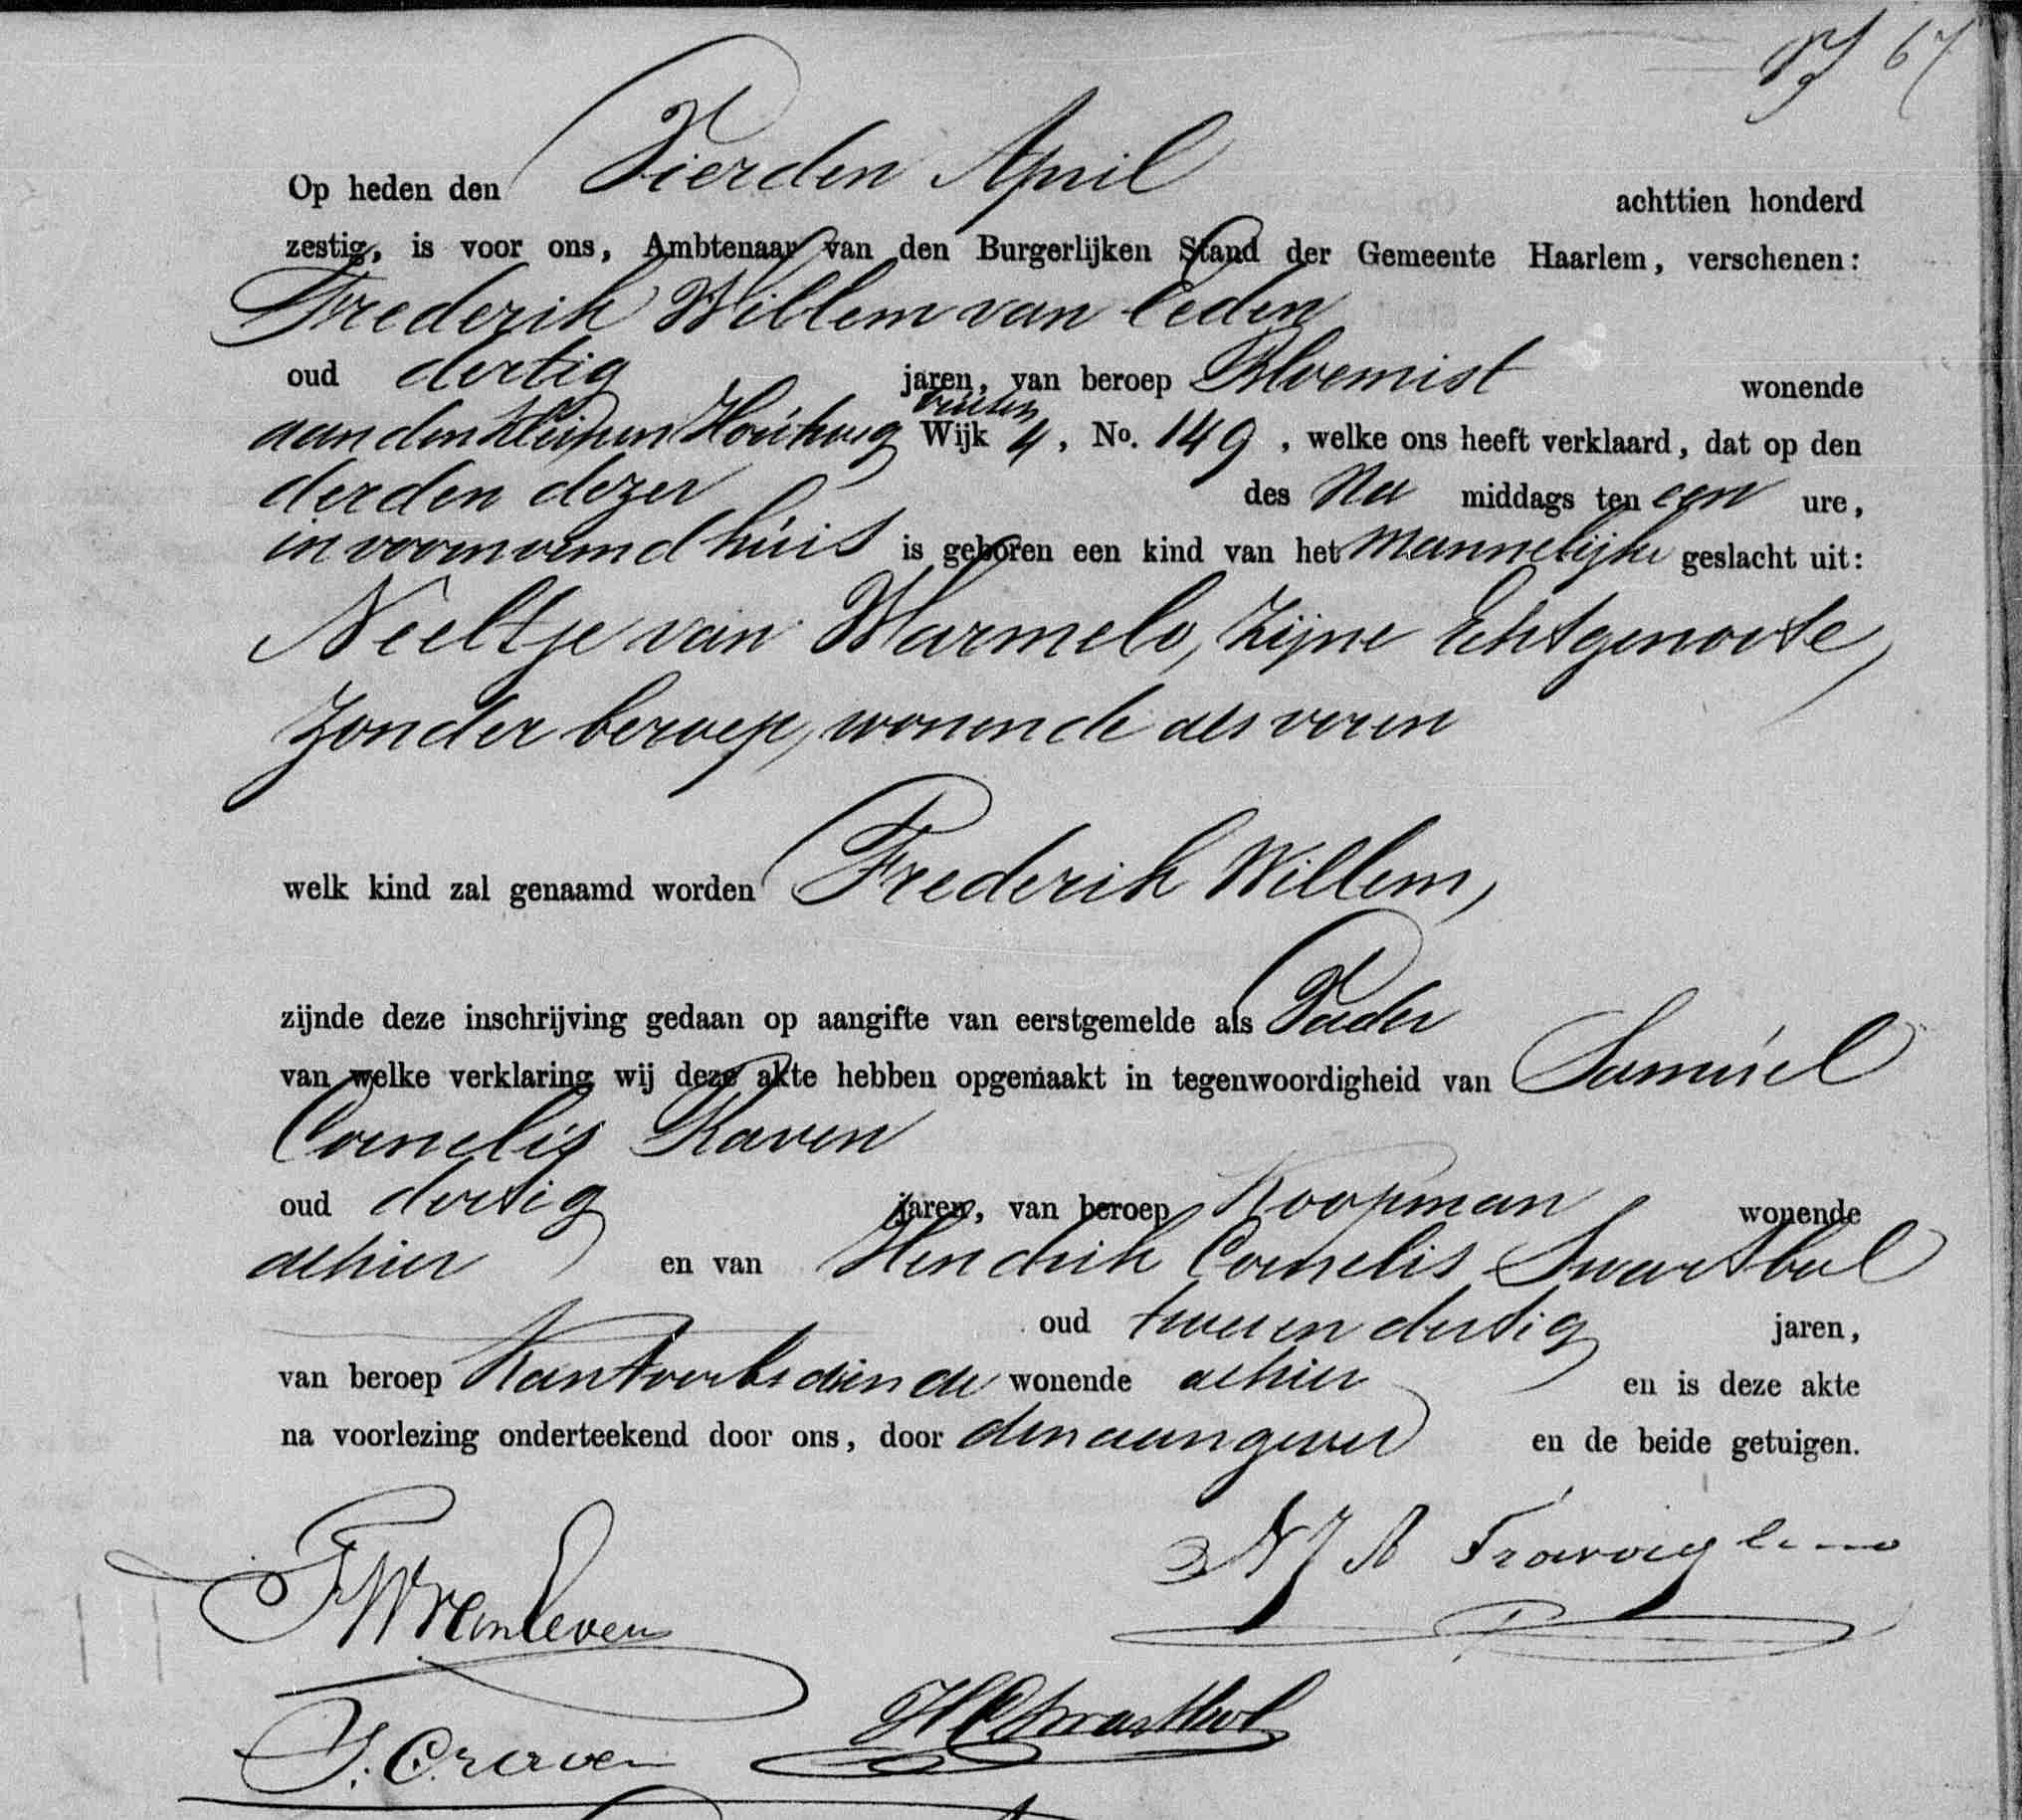 67
Op heden den Vierden April achttien honderd
zestig, is voor ons, Ambtenaar van den Burgerlijken Stand der Gemeente Haarlem, verschenen:
Frederik Willem van Eeden
oud dertig jaren, van beroep Bloemist wonende
buiten
aan den kleinen Houtweg Wijk 4, No. 149, welke ons heeft verklaard, dat op den
derden dezer des Na middags ten een ure,
in voornoemd huis is geboren een kind van het mannelijke geslacht uit:
Neeltje van Warmelo, zijne Echtgenoote,
zonder beroep, wonende als voren
welk kind zal genaamd worden Frederik Willem,
zijnde deze inschrijving gedaan op aangifte van eerstgemelde als Vader
van welke verklaring wij deze akte hebben opgemaakt in tegenwoordigheid van Samuel
Cornelis Raven
oud dertig jaren, van beroep Koopman wonende
alhier en van Hendrik Cornelis Swartbol
oud tweeendertig jaren,
van beroep Kantoorbediende wonende alhier en is deze akte
na voorlezing onderteekend door ons, door den aangever en de beide getuigen.
FW van Eeden
S. C. raven
HC Swartbol